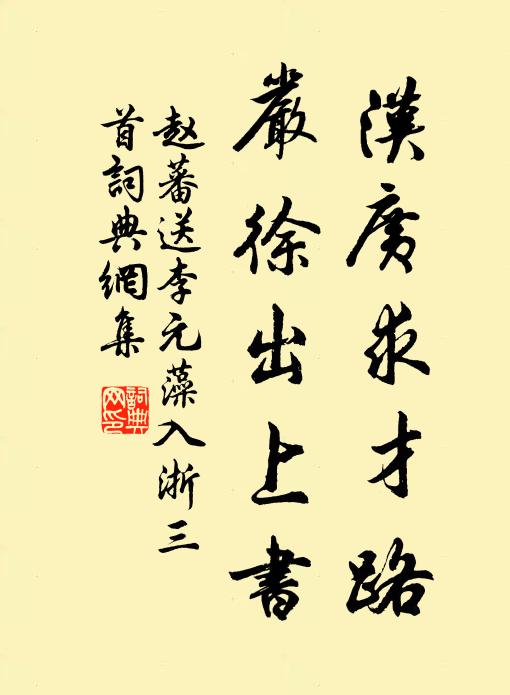 漢廣求才路
嚴徐出上書
赵蕃送李元藻入浙三
首詞典網集
詞典網印